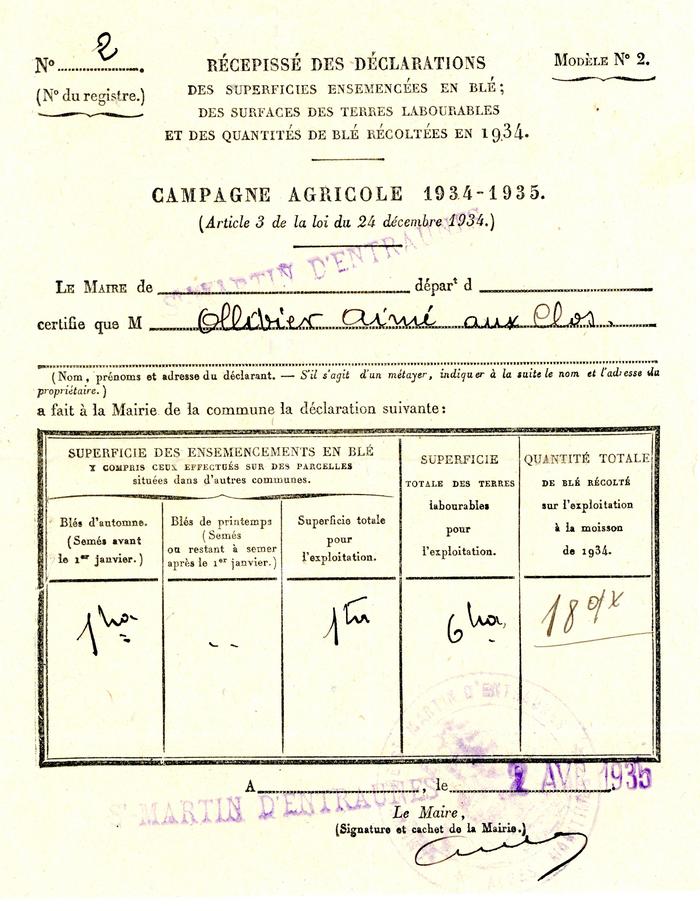 Nº 2.
(Nº du registre.)
RÉCEPISSÉ DES DÉCLARATIONS
DES SUPERFICIES ENSEMENCÉES EN BLÉ;
DES SURFACES DES TERRES LABOURABLES
ET DES QUANTITÉS DE BLÉ RÉCOLTÉES EN 1934.
MODÈLE Nº 2.
CAMPAGNE AGRICOLE 1934-1935.
(Article 3 de la loi du 24 décembre 1934.)
LE MAIRE de ST MARTIN D'ENTRAUNES départ d
certifie que M Ollivier Aimé aux Clos.
(Nom, prénoms et adresse du déclarant. — S'il s'agit d'un métayer, indiquer à la suite le nom et l'adresse du
propriétaire.)
a fait à la Mairie de la commune la déclaration suivante:
SUPERFICIE DES ENSEMENCEMENTS EN BLÉ
Y COMPRIS CEUX EFFECTUÉS SUR DES PARCELLES
situées dans d'autres communes.
Blés d'automne.
(Semés avant
le 1er janvier.)
Blés de printemps
(Semés
ou restant à semer
après le 1er janvier.)
Superficie totale
pour
l'exploitation.
SUPERFICIE
TOTALE DES TERRES
labourables
pour
l'exploitation.
QUANTITÉ TOTALE
DE BLÉ RÉCOLTÉ
sur l'exploitation
à la moisson
de 1934.
1 ha
--
1 ha
6 ha
18 qx
A ST MARTIN D'ENTRAUNES, le 2 AVR 1935
Le Maire,
(Signature et cachet de la Mairie.)
MARTIN D'ENTRAUNES